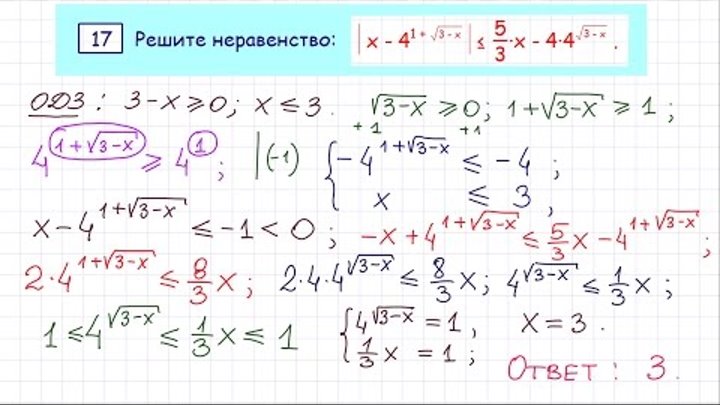 17 Решите неравенство: | x - 4^{1+√(3-x)} | ≤ 5/3·x - 4·4^{√(3-x)} .
ОДЗ : 3-x ≥ 0; x ≤ 3. √(3-x) ≥ 0; 1+√(3-x) ≥ 1 ;
+1 +1
4^{1+√(3-x)} ≥ 4^{1} ; |(-1) { -4^{1+√(3-x)} ≤ -4 ;
x ≤ 3 ,
x-4^{1+√(3-x)} ≤ -1 < 0 ; -x+4^{1+√(3-x)} ≤ 5/3 x - 4^{1+√(3-x)} ;
2·4^{1+√(3-x)} ≤ 8/3 x ; 2·4·4^{√(3-x)} ≤ 8/3 x ; 4^{√(3-x)} ≤ 1/3 x ;
1 ≤ 4^{√(3-x)} ≤ 1/3 x ≤ 1 { 4^{√(3-x)} = 1 , x = 3 .
1/3 x = 1 ;
Ответ : 3 .